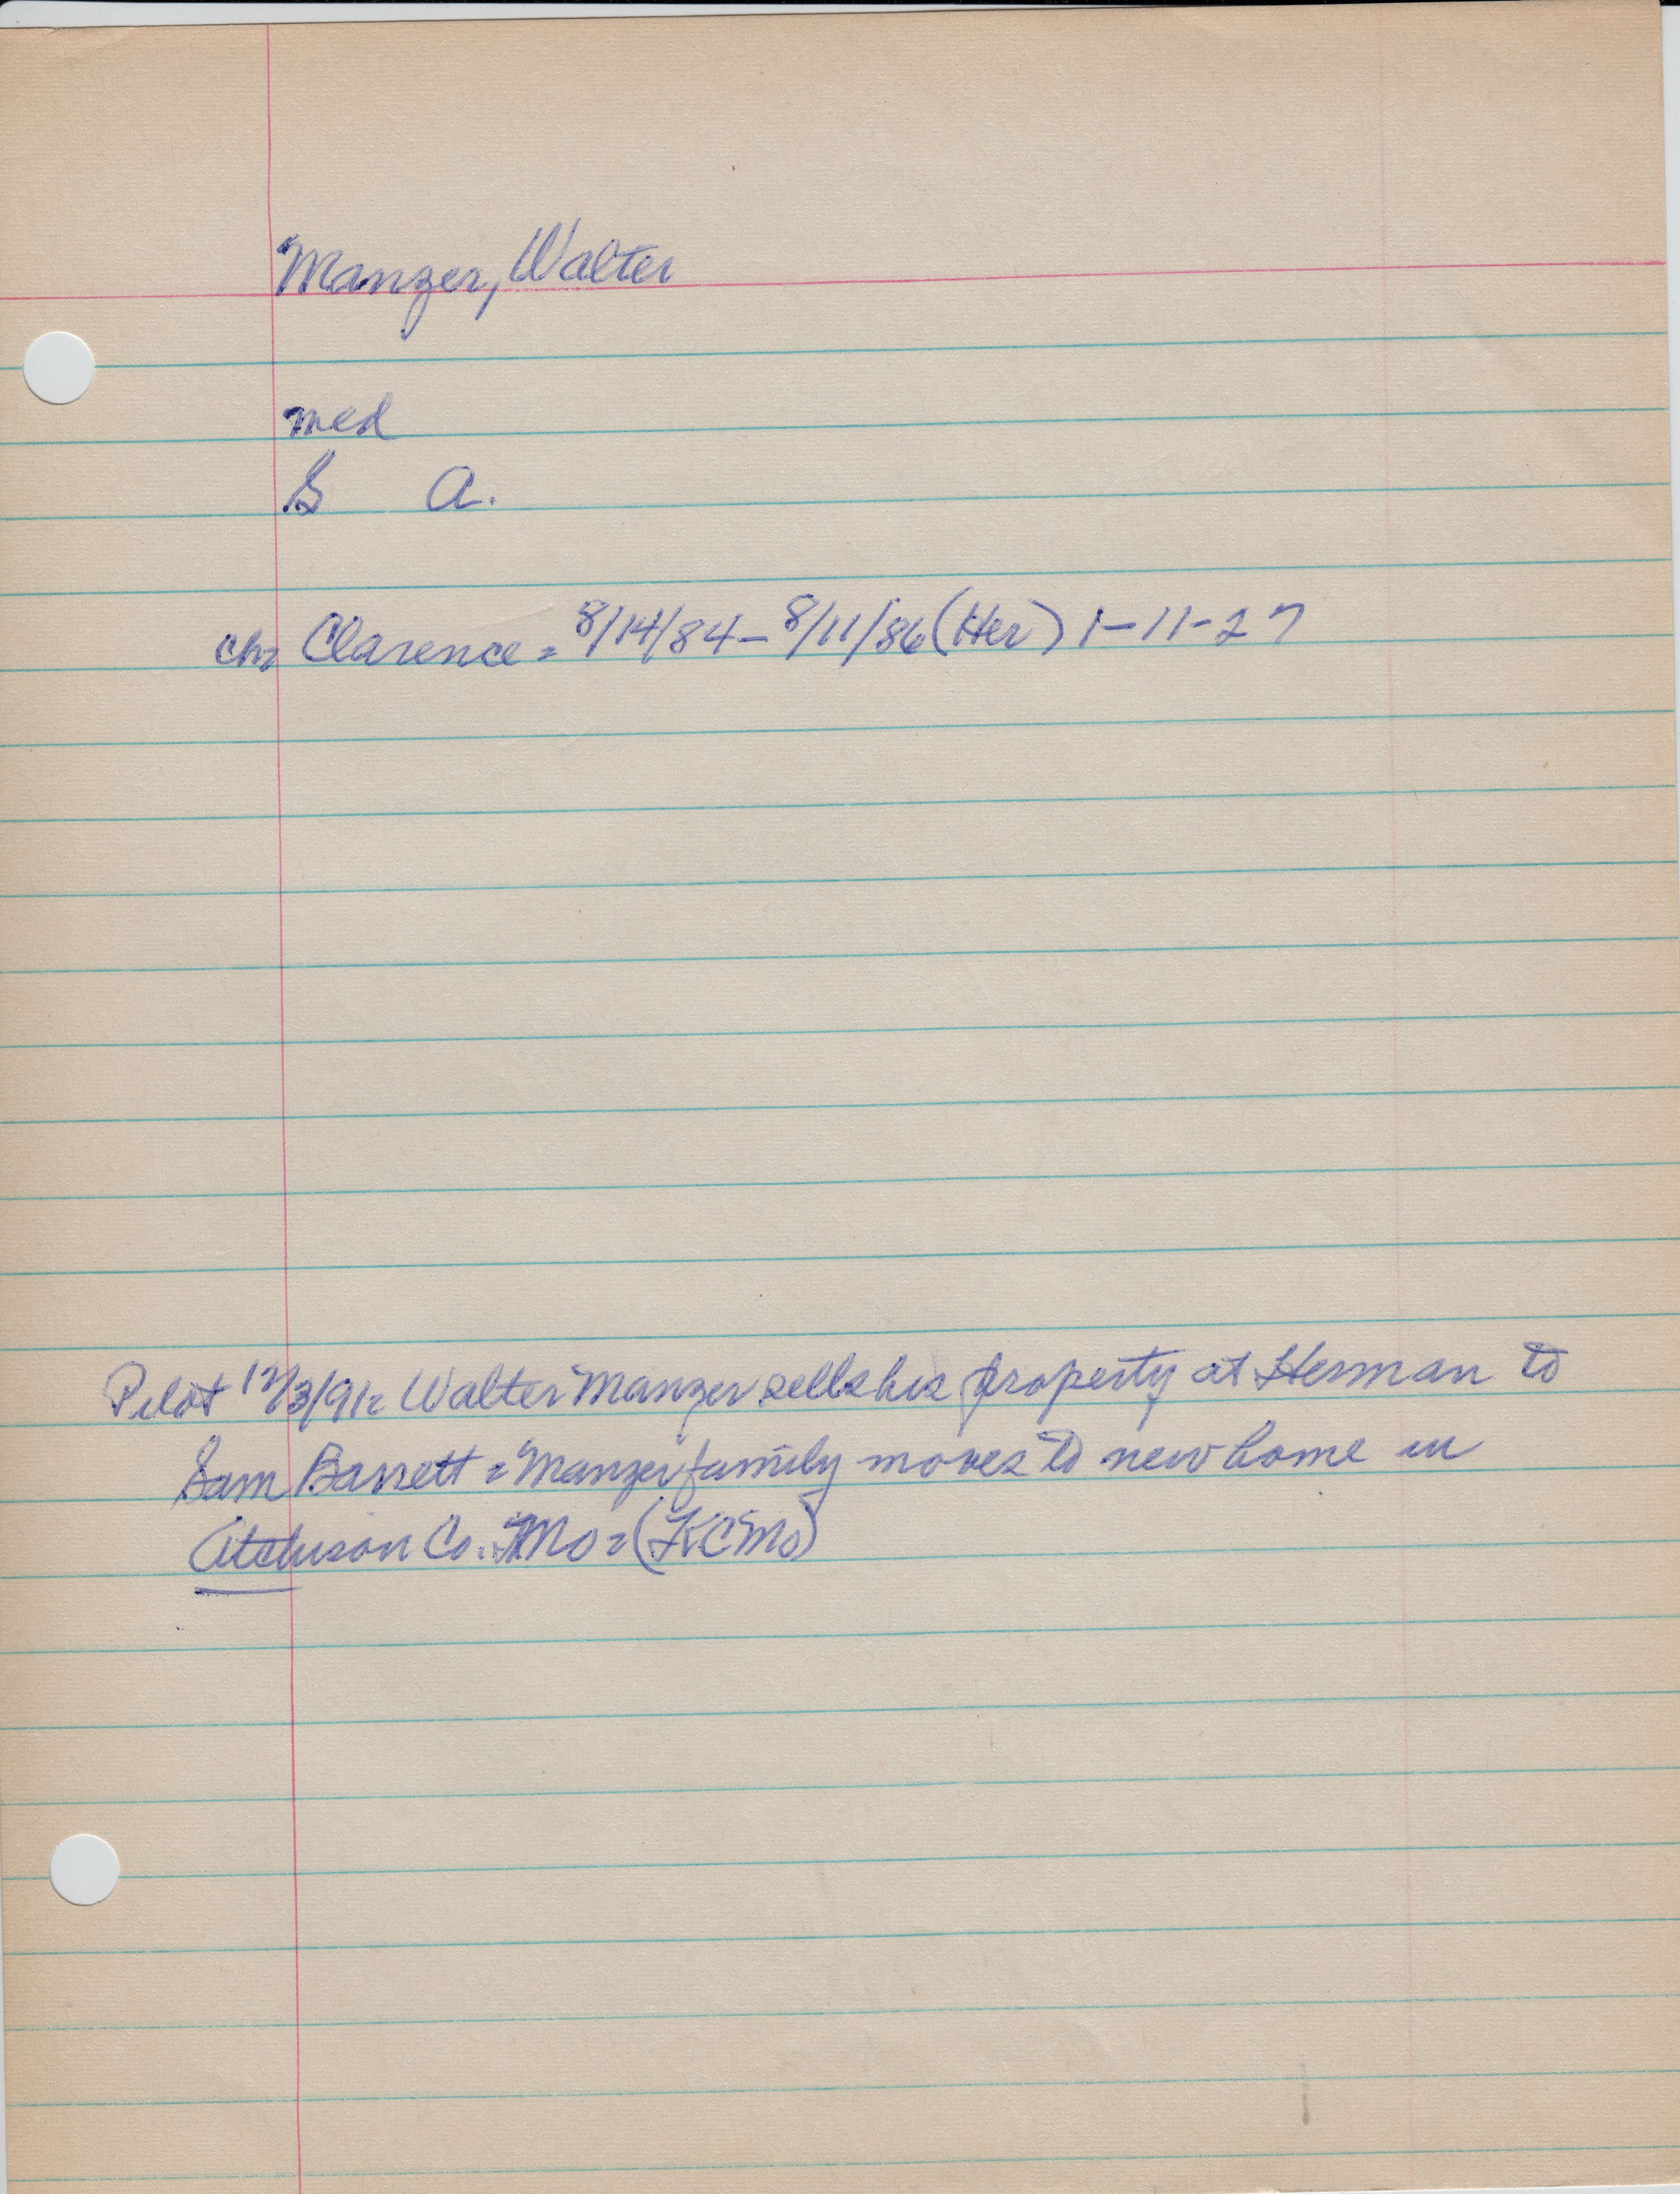 Manzer, Walter
med
S A.
ch= Clarence = 8/14/84 - 8/11/86 (Her) 1-11-27
Pilot 12/3/91= Walter Manzer sells his property at Herman to
Sam Barrett = Manzer family moves to new home in
Atchison Co. Mo = (KCMo)